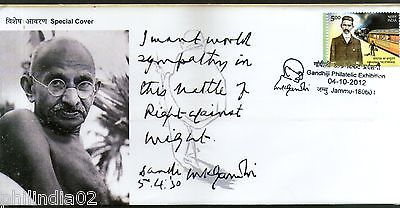 विशेष आवरण Special Cover
I want world
sympathy in
this battle of
Right against
might.
Dandi MKGandhi
5.4.'30
5.00
भारत INDIA
Gandhiji Philatelic Exhibition
04-10-2012
जम्मू Jammu-180001
MKGandhi
philindia02